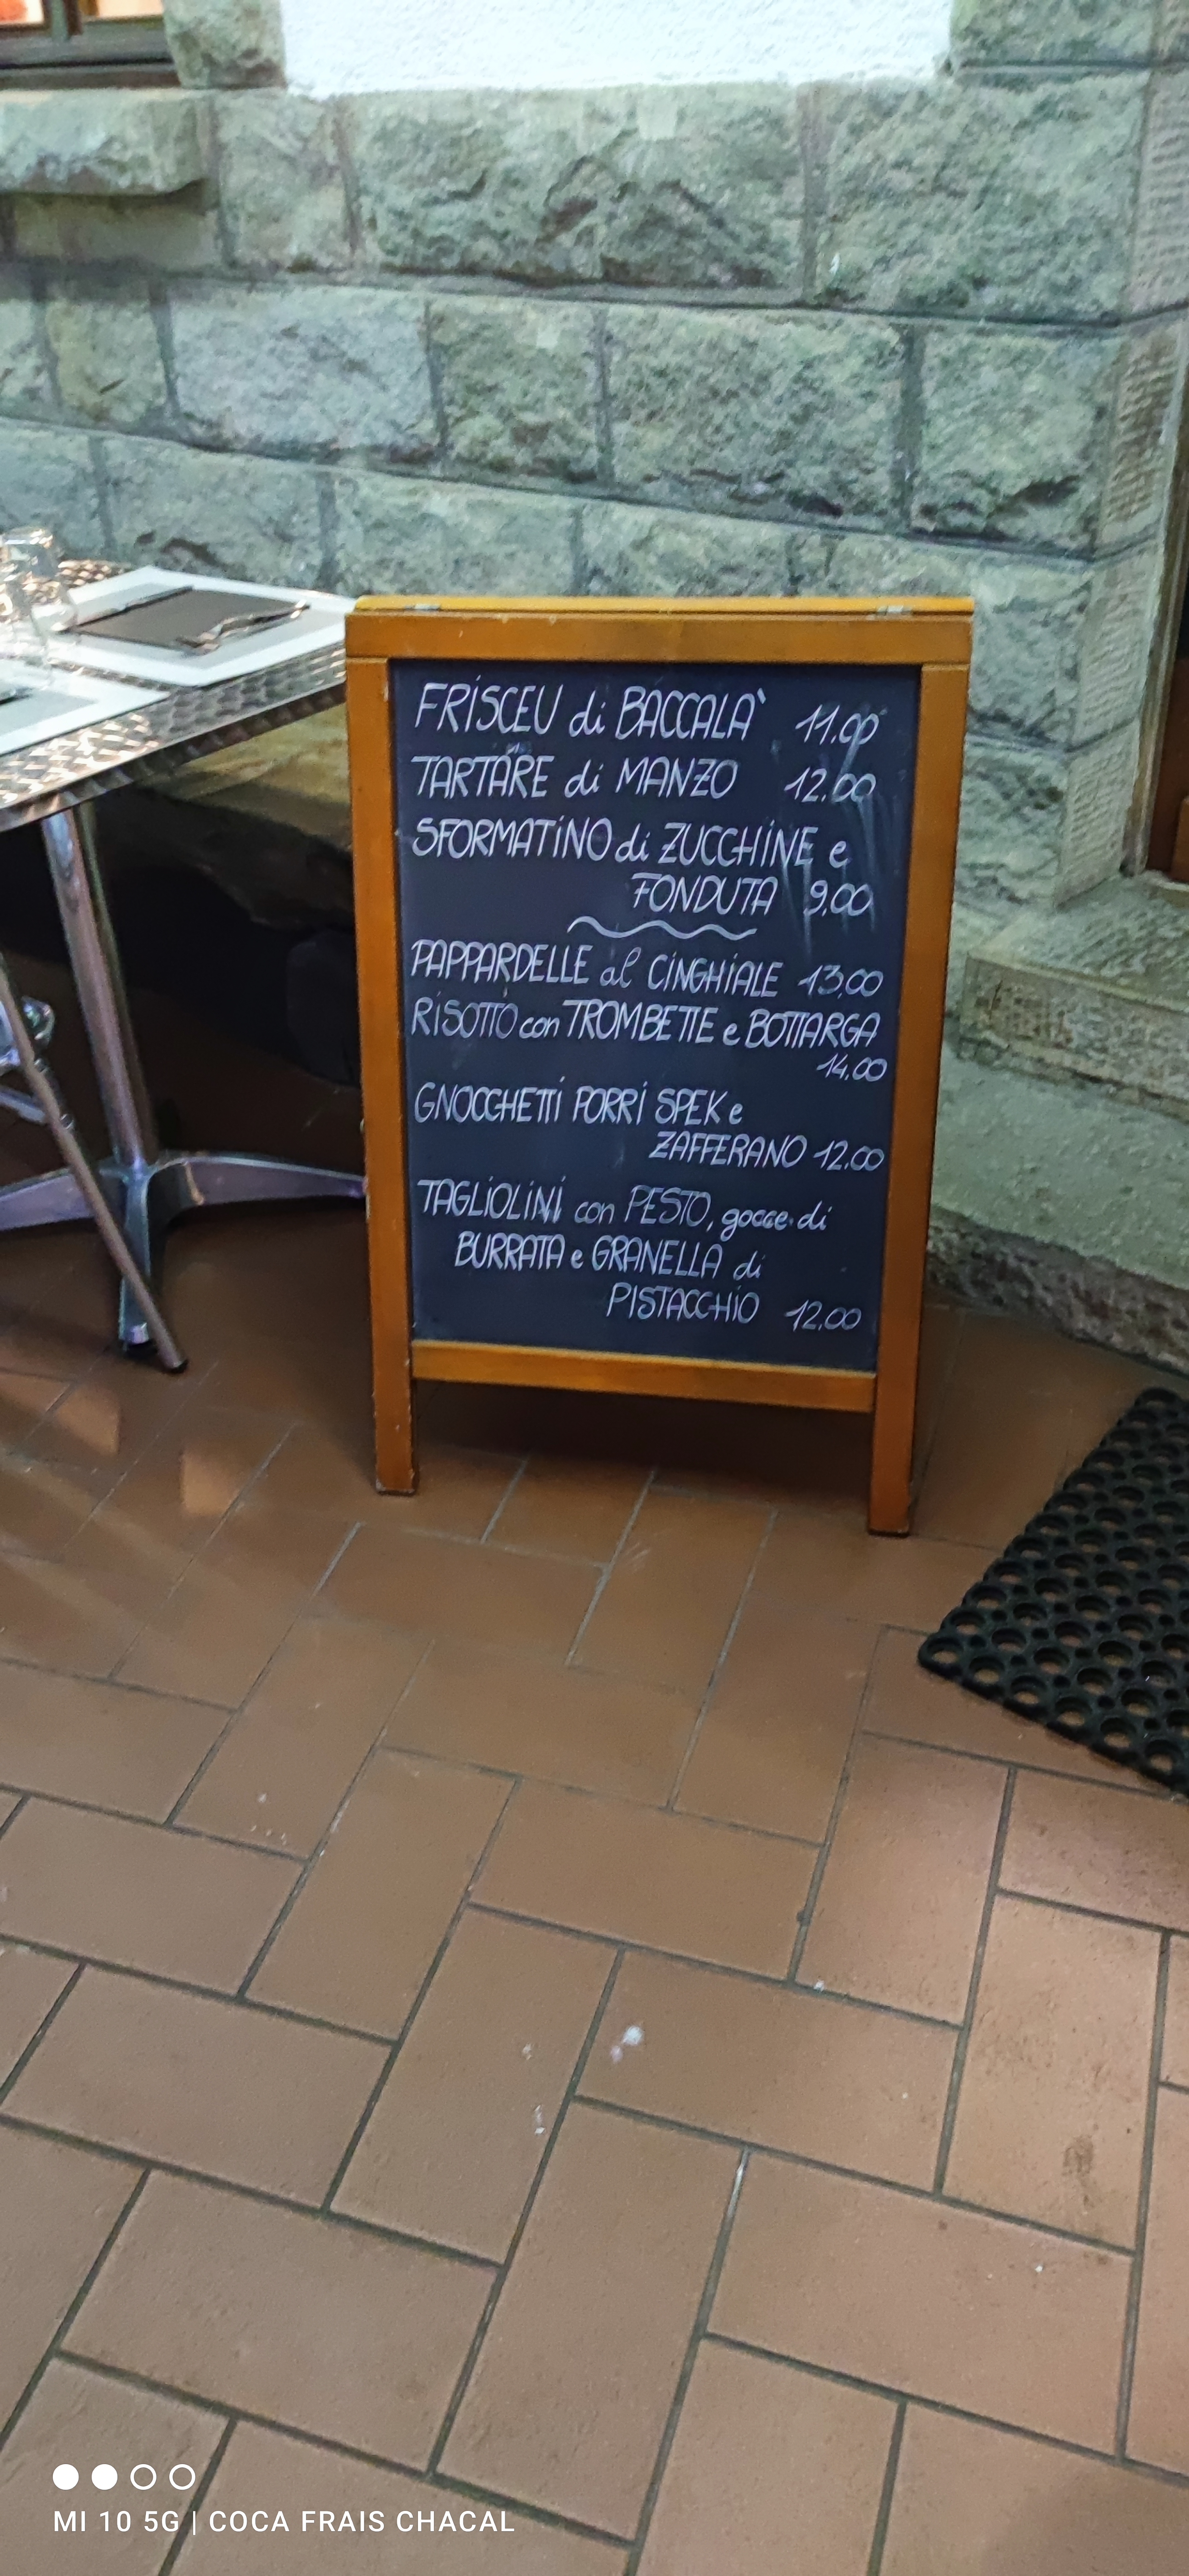 FRISCEU di BACCALA'  11.00
TARTARE di MANZO  12.00
SFORMATINO di ZUCCHINE e
FONDUTA  9.00
PAPPARDELLE al CINGHIALE  13,00
RISOTTO con TROMBETTE e BOTTARGA
14.00
GNOCCHETTI PORRI SPEK e
ZAFFERANO 12.00
TAGLIOLINI con PESTO, gocce di
BURRATA e GRANELLA di
PISTACCHIO  12.00
MI 10 5G | COCA FRAIS CHACAL